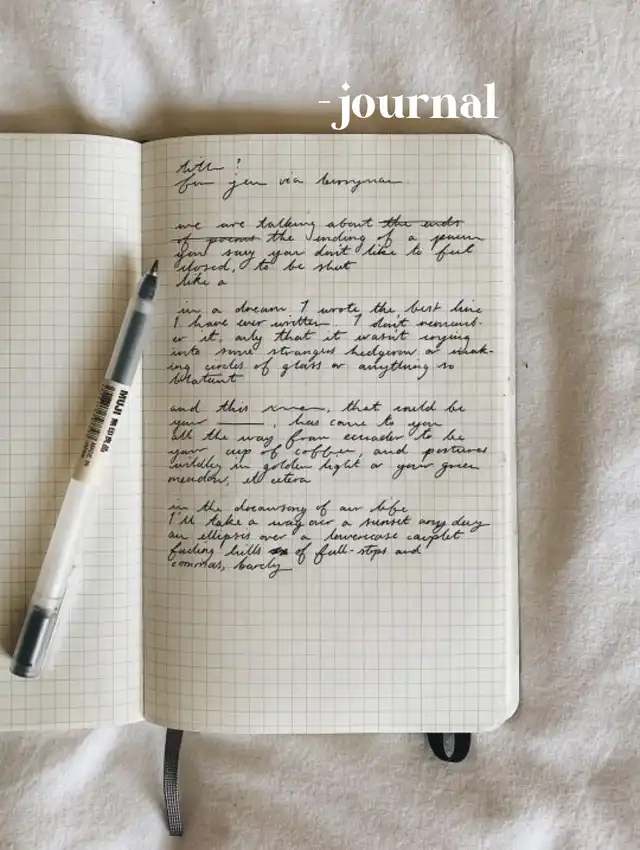 -journal
for jen via
we are talking about the ends
of poems the ending of a poem
you say you don't like to feel
closed, to be shut
like a
in a dream I wrote the best line
I have ever written. I don't rememb-
er it, only that it wasn't
into some strangers hedgerow or mak-
ing circles of glass or anything so
blatant
and this, that could be
your, has come to you
all the way from ecuador to be
your cup of coffee, and postures
wildly in golden light or your green
meadow, et cetera
in the dreamsong of our life
I'll take a wave over a sunset any day
an ellipses over a lowercase
fading hills of full-stops and
commas, barely
MUJI 無印良品